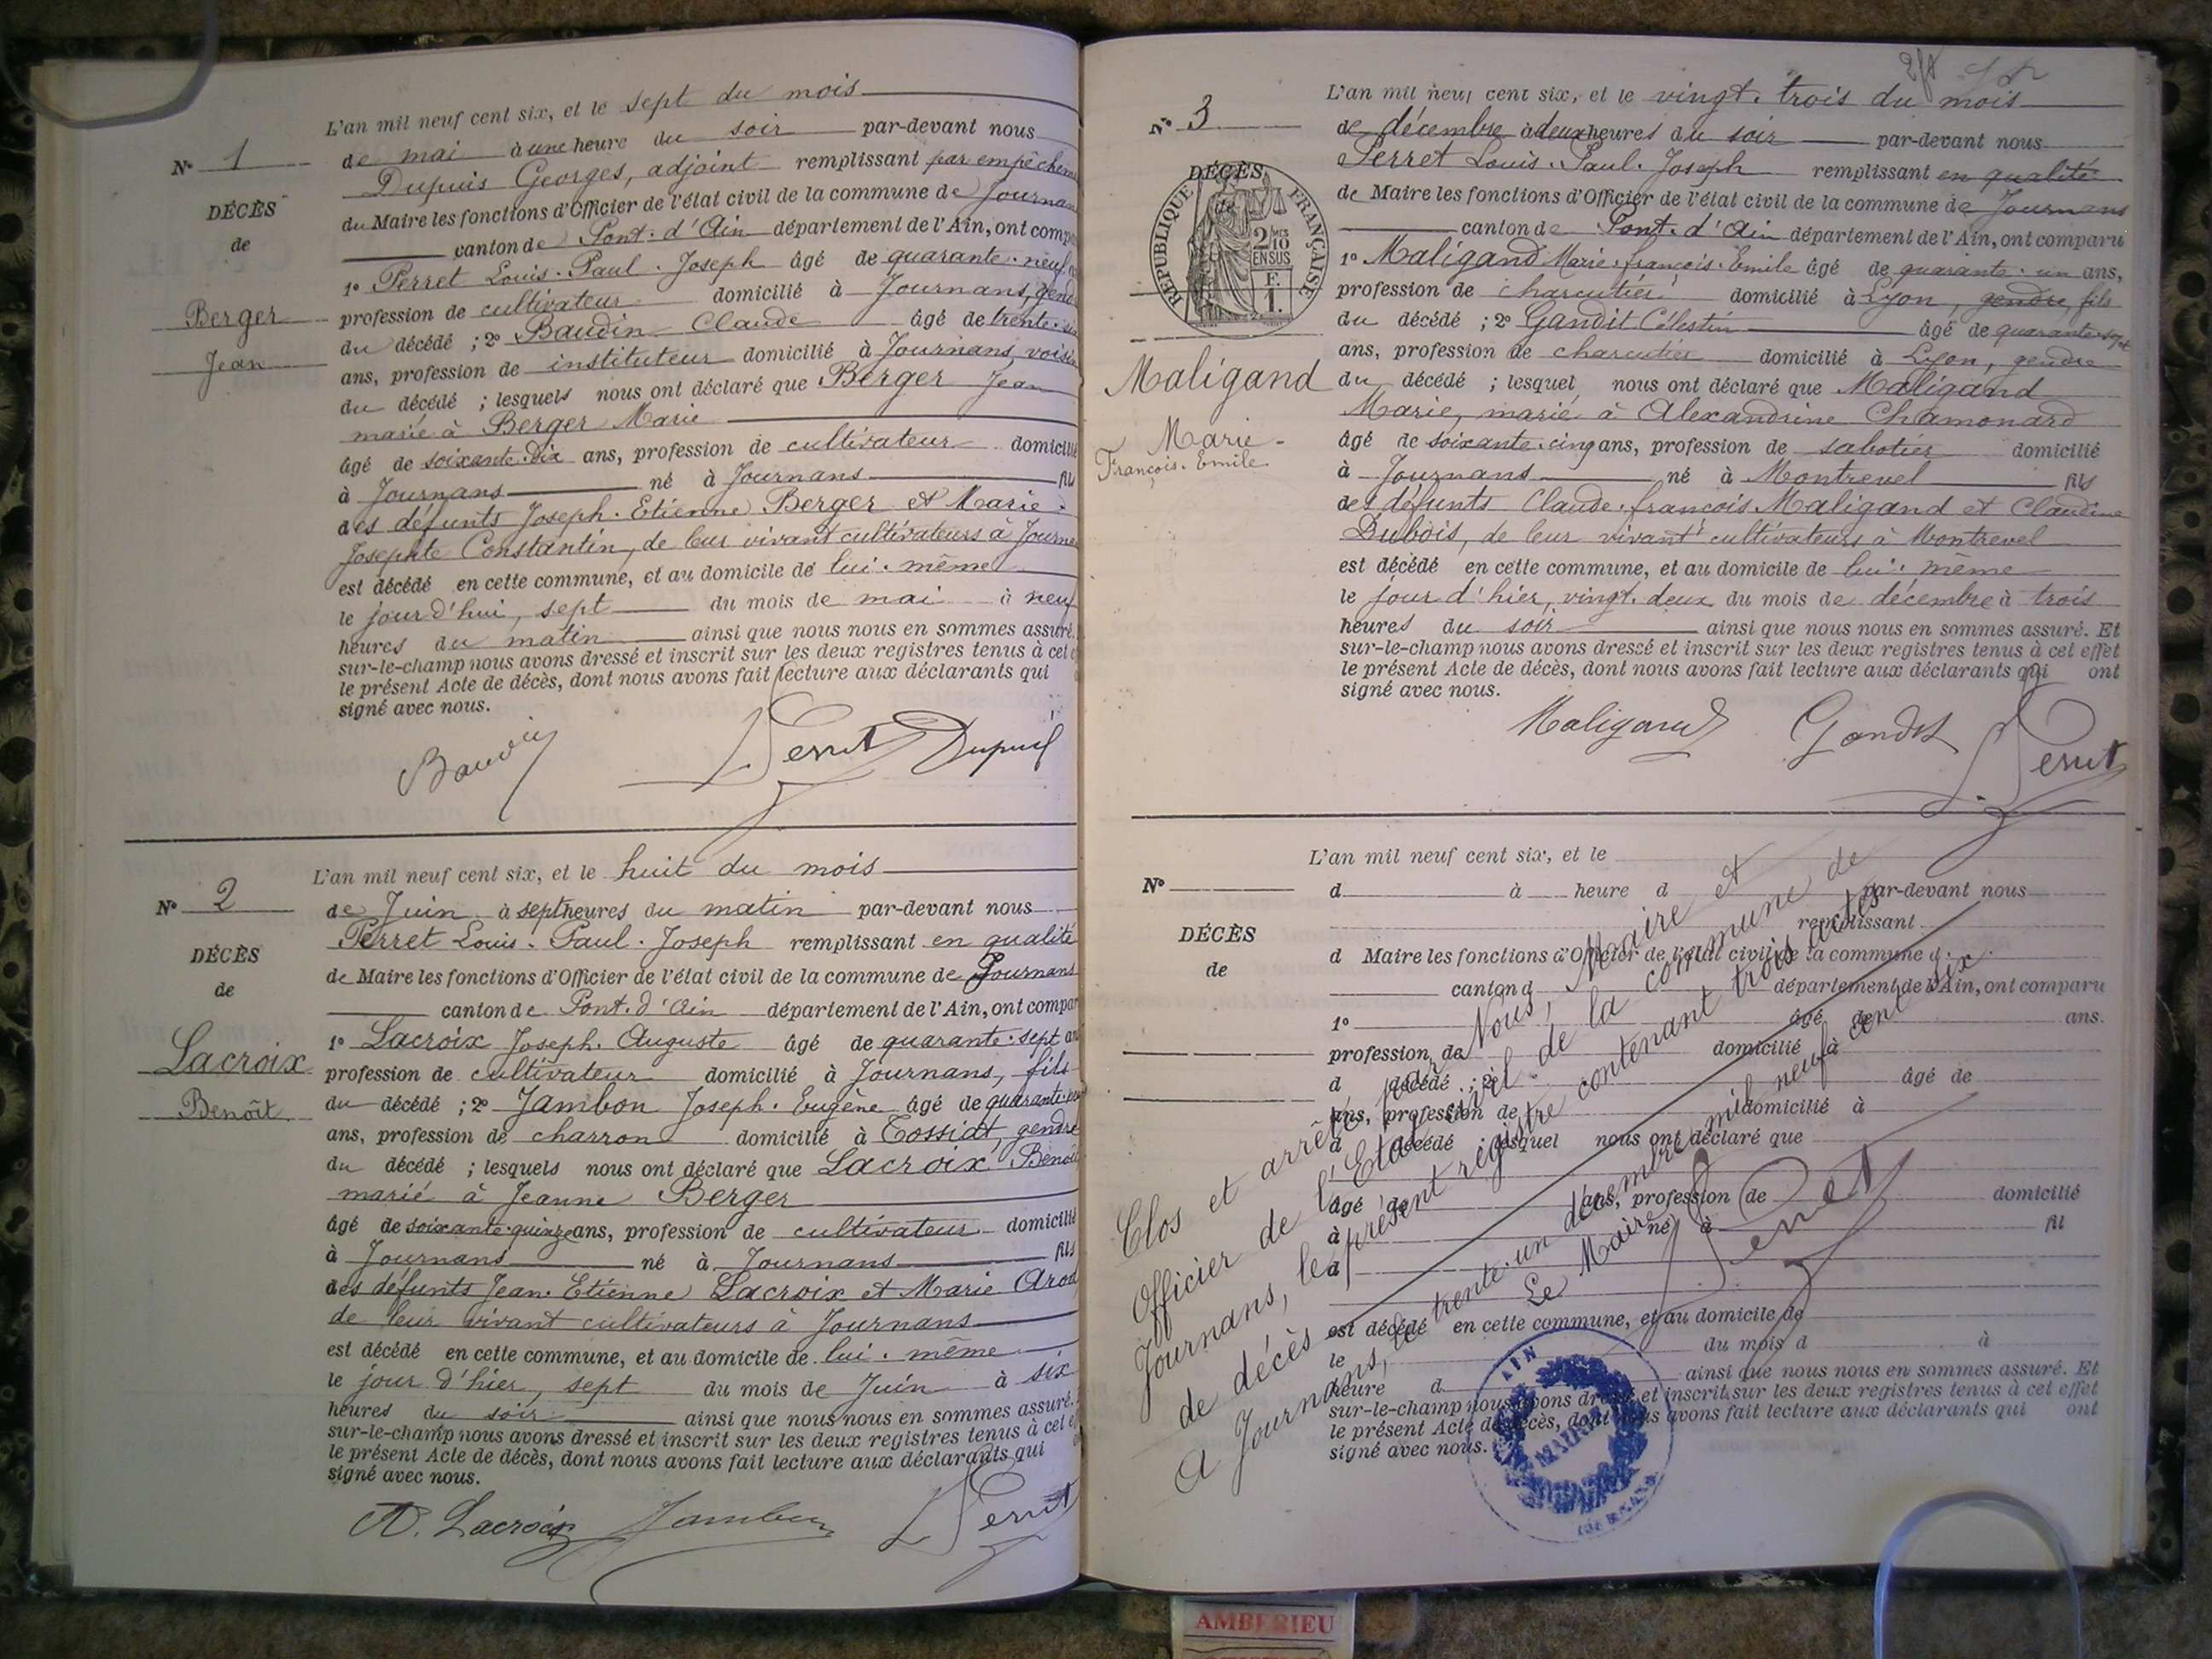 N° 1
DÉCÈS
de
Berger
Jean
L'an mil neuf cent six, et le sept du mois
de mai à une heure du soir par-devant nous
Dupuis Georges, adjoint remplissant par empêchem
du Maire les fonctions d'Officier de l'état civil de la commune de Journan
canton de Pont-d'Ain département de l'Ain, ont comp
1° Perret Louis-Paul-Joseph âgé de quarante-neuf
profession de cultivateur domicilié à Journans, gend
du décédé ; 2° Baudin Claude âgé de trente-six
ans, profession de instituteur domicilié à Journans, voisin
du décédé ; lesquels nous ont déclaré que Berger Jean
marié à Berger Marie
âgé de soixante-dix ans, profession de cultivateur domicilié
à Journans né à Journans fils
des défunts Joseph-Etienne Berger et Marie-
Josephte Constantin, de leur vivant cultivateurs à Journa
est décédé en cette commune, et au domicile de lui-même
le jour d'hui, sept du mois de mai à neuf
heures du matin ainsi que nous nous en sommes assuré.
sur-le-champ nous avons dressé et inscrit sur les deux registres tenus à cet
le présent Acte de décès, dont nous avons fait lecture aux déclarants qui
signé avec nous.
Baudin Perret Dupuis
N° 2
DÉCÈS
de
Lacroix
Benoît
L'an mil neuf cent six, et le huit du mois
de Juin à sept heures du matin par-devant nous
Perret Louis-Paul-Joseph remplissant en qualité
de Maire les fonctions d'Officier de l'état civil de la commune de Journans
canton de Pont-d'Ain département de l'Ain, ont compar
1° Lacroix Joseph-Auguste âgé de quarante-sept an
profession de cultivateur domicilié à Journans, fils
du décédé ; 2° Jambon Joseph-Eugène âgé de quarante
ans, profession de charron domicilié à Tossiat, gendre
du décédé ; lesquels nous ont déclaré que Lacroix Benoit
marié à Jeanne Berger
âgé de soixante-quinze ans, profession de cultivateur domicilié
à Journans né à Journans fils
des défunts Jean-Etienne Lacroix et Marie Arod
de leur vivant cultivateurs à Journans
est décédé en cette commune, et au domicile de lui-même
le jour d'hier, sept du mois de Juin à six
heures du soir ainsi que nous nous en sommes assuré.
sur-le-champ nous avons dressé et inscrit sur les deux registres tenus à cet e
le présent Acte de décès, dont nous avons fait lecture aux déclarants qui
signé avec nous.
A. Lacroix Jambon Perret
N° 3
DÉCÈS
RÉPUBLIQUE FRANÇAISE
2/10 EN SUS
F. 1.
Maligand
Marie-
François-Emile
L'an mil neuf cent six, et le vingt-trois du mois
de décembre à deux heures du soir par-devant nous
Perret Louis-Paul-Joseph remplissant en qualité
de Maire les fonctions d'Officier de l'état civil de la commune de Journans
canton de Pont-d'Ain département de l'Ain, ont comparu
1° Maligand Marie-françois-Emile âgé de quarante-un ans,
profession de charcutier domicilié à Lyon, gendre, fils
du décédé ; 2° Gandit Célestin âgé de quarante-sept
ans, profession de charcutier domicilié à Lyon, gendre
du décédé ; lesquel nous ont déclaré que Maligand
Marie, marié à Alexandrine Chamonard
âgé de soixante-cinq ans, profession de sabotier domicilié
à Journans né à Montrevel fils
des défunts Claude-françois Maligand et Claudine
Dubois, de leur vivant cultivateurs à Montrevel
est décédé en cette commune, et au domicile de lui-même
le jour d'hier, vingt-deux du mois de décembre à trois
heures du soir ainsi que nous nous en sommes assuré. Et
sur-le-champ nous avons dressé et inscrit sur les deux registres tenus à cet effet
le présent Acte de décès, dont nous avons fait lecture aux déclarants qui ont
signé avec nous.
Maligand Gandit Perret
N°
DÉCÈS
de
L'an mil neuf cent six, et le
d à heure d par-devant nous
remplissant
d Maire les fonctions d'Officier de l'état civil de la commune d
canton d département de l'Ain, ont comparu
1° âgé de ans.
profession de domicilié à
d décédé ; 2° âgé de
ans, profession de domicilié à
d décédé ; lesquel nous ont déclaré que
âgé de ans, profession de domicilié
à né à fil
d
est décédé en cette commune, et au domicile de
le du mois d à
heure d ainsi que nous nous en sommes assuré. Et
sur-le-champ nous avons dressé et inscrit sur les deux registres tenus à cet effet
le présent Acte de décès, dont nous avons fait lecture aux déclarants qui ont
signé avec nous.
Clos et arrêté par Nous, Maire et
Officier de l'Etat civil de la commune de
Journans, le présent registre contenant trois actes
de décès
A Journans, le trente-un décembre mil neuf cent six
Le Maire
Perret
AIN
MAIRIE
AMBERIEU